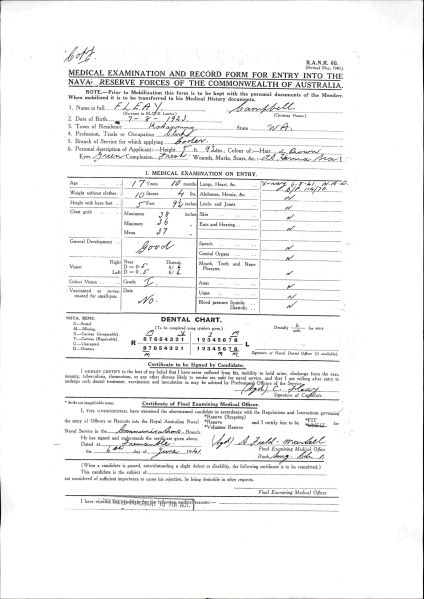 Copy.
R.A.N.R. 68.
(Revised May, 1940.)
MEDICAL EXAMINATION AND RECORD FORM FOR ENTRY INTO THE
NAVAL RESERVE FORCES OF THE COMMONWEALTH OF AUSTRALIA.
NOTE.—Prior to Mobilisation this form is to be kept with the personal documents of the Member.
When mobilized it is to be transferred to his Medical History documents.
1. Name in full FLEAY Campbell
(Surname in BLOCK Letters.) (Christian Names.)
2. Date of Birth 7-8-1923.
3. Town of Residence Katanning State W.A.
4. Profession, Trade or Occupation Clerk
5. Branch of Service for which applying Coder.
6. Personal description of Applicant:—Height 5 ft. 9½ in., Colour of:—Hair Brown
Eyes Green Complexion Fresh Wounds, Marks, Scars, &c.
I. MEDICAL EXAMINATION ON ENTRY.
Age 17 Years 10 months Lungs, Heart, &c. X-ray N.A.D.
Weight without clothes 10 Stones 4 lbs. Abdomen, Hernia, &c. N
Height with bare feet 5 Feet 9½ inches Limbs and Joints N
Chest girth Maximum 38 inches Skin N
Minimum 36 Ears and Hearing N
Mean 37
General Development Good Speech N
Genital Organs N
Vision Near Distant Mouth, Teeth and Naso-Pharynx. N
Right D = 0.5 6/6
Left D = 0.5 6/6
Colour Vision Grade I Arms N
Vaccinated or re-vaccinated for small-pox. Date No. Urine N
Blood pressure Systolic Diastolic N
NOTA BENE. DENTAL CHART.
X—Sound. (To be completed using symbols given.)
M—Missing.
R 87654321 12345678 L
87654321 12345678
D—Denture
Dentally fit for entry
Signature of Naval Dental Officer (if available).
Certificate to be Signed by Candidate.
I HEREBY CERTIFY to the best of my belief that I have never suffered from fits, inability to hold urine, discharge from the ears,
insanity, tuberculosis, rheumatism, or any other disease likely to render me unfit for naval service, and that I am willing after entry to
undergo such dental treatment, vaccination and inoculation as may be advised by Professional Officers of the Service.
(Sgd) C. Fleay
Signature of Candidate.
* Strike out inapplicable items. Certificate of Final Examining Medical Officer.
I, THE UNDERSIGNED, have examined the abovenamed candidate in accordance with the Regulations and Instructions governing
the entry of Officers or Recruits into the Royal Australian Naval *Reserve (Seagoing) *Reserve *Volunteer Reserve and I certify him to be *FIT *UNFIT for
Naval Service in the Communications Branch.
He has signed and understands the certificate given above.
Dated at Fremantle (Sgd) A. Field-Martell
the 6th day of June 1941. Final Examining Medical Officer
Rank
(When a candidate is passed, notwithstanding a slight defect or disability, the following certificate is to be completed.)
This candidate is the subject of
not considered of sufficient importance to cause his rejection, he being desirable in other respects.
Final Examining Medical Officer.
I have rejected this candidate for the following medical reasons:
Final Examining Medical Officer.